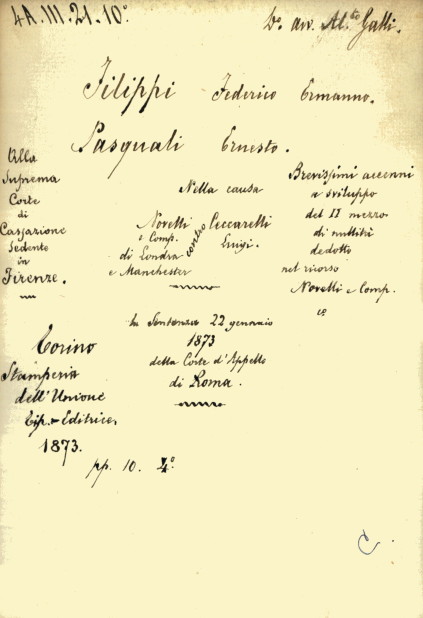 4A.III.21.10º
Dº. avv. Al.to Gatti.
Filippi Federico Ermanno.
Pasquali Ernesto.
Alla
Suprema
Corte
di
Cassazione
Sedente
in
Firenze.
Nella causa
Novelli
e Comp.
di Londra
e Manchester
contro
Ceccarelli
Luigi.
Brevissimi accenni
a sviluppo
del II mezzo
di nullità
dedotto
nel ricorso
Novelli e Comp.
Sentenza 22 gennaio
1873
della Corte d'Appello
di Roma.
Torino
Stamperia
dell'Unione
Tip.-Editrice,
1873.
pp. 10. 4º.